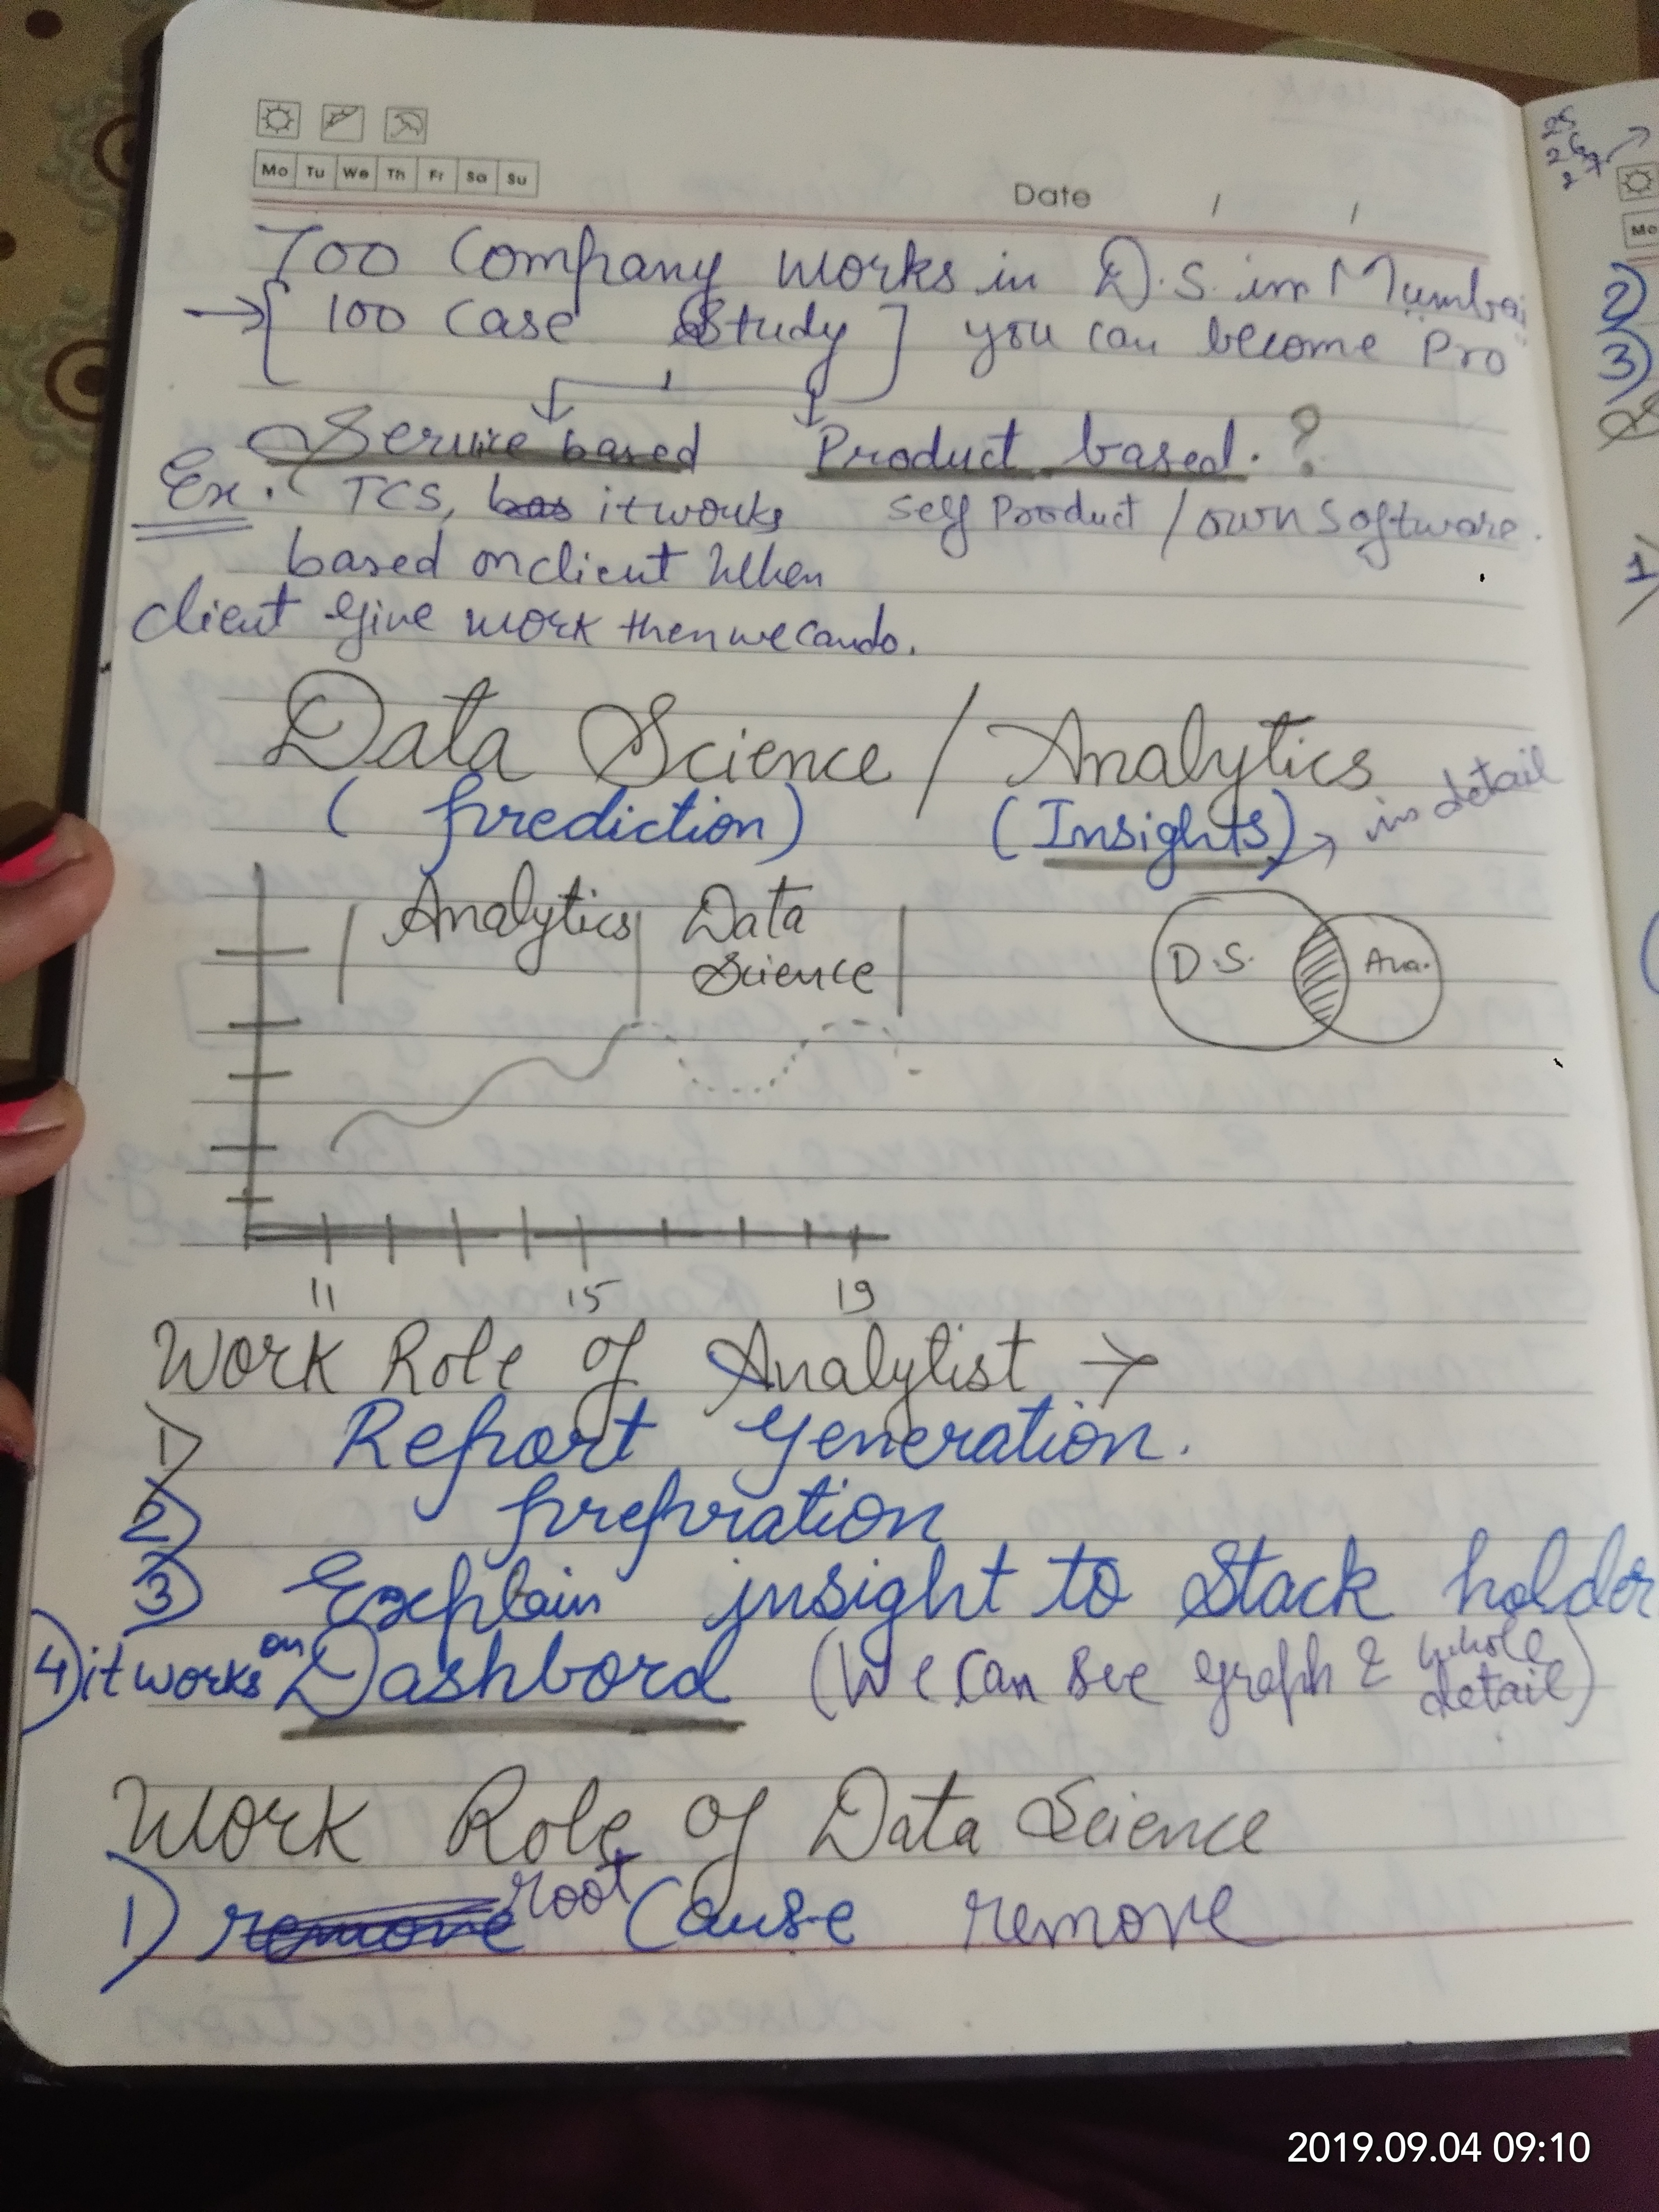 Mo Tu We Th Fr Sa Su
Date / /
700 Company works in D.S. in Mumbai
→ [ 100 Case Study ] you can become Pro
Service based Product based. ?
Ex. TCS, it works self Product / own software.
based on client When
client give work then we can do.
Data Science / Analytics
(prediction) (Insights) → in detail
Analytics Data
Science
D.S. Ana.
11 15 19
Work Role of Analylist →
1) Report generation.
2) prepration
3) Explain insight to Stack holder
4) it works on Dashbord (We can see graph & whole detail)
Work Role of Data Science
1) root Cause remove
2)
3)
1)
Mo
2019.09.04 09:10